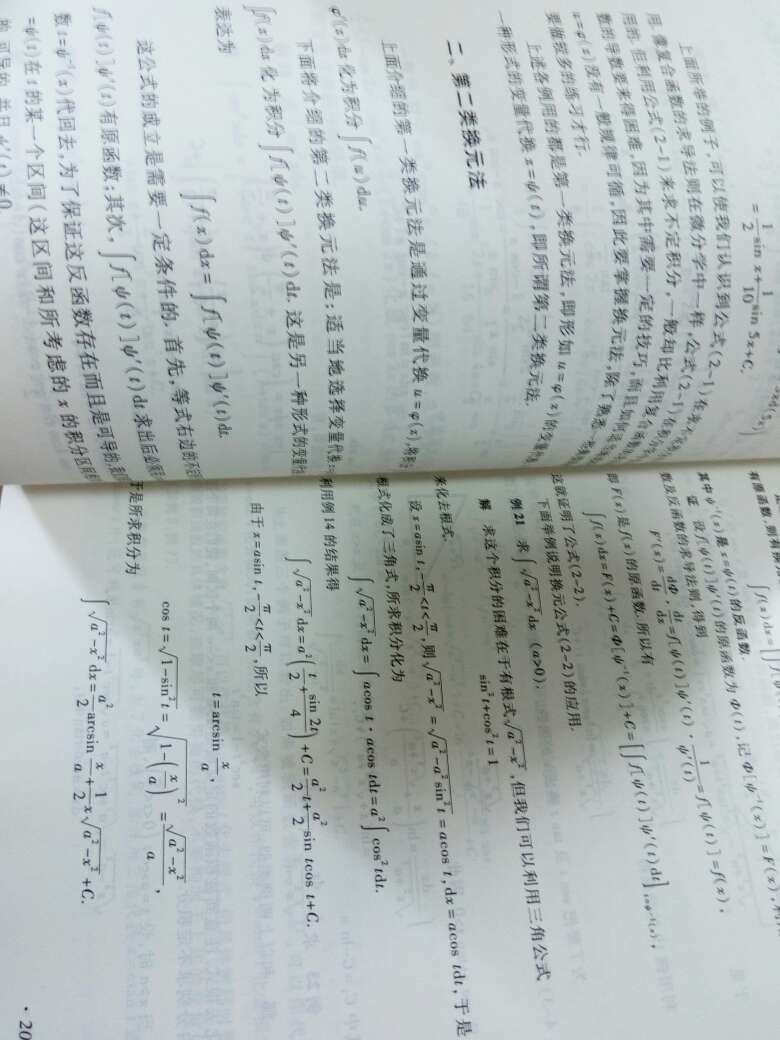 = 1/2 sin x + 1/10 sin 5x + C.
上面所举的例子,可以使我们认识到公式(2-1)在求不定积
用.像复合函数的求导法则在微分学中一样,公式(2-1)在积分学
用的.但利用公式(2-1)来求不定积分,一般却比利用复合函数
数的导数要来得困难,因为其中需要一定的技巧,而且如何
u=φ(x)没有一般规律可循,因此要掌握换元法,除了熟悉
要做较多的练习才行.
上述各例用的都是第一类换元法,即形如 u=φ(x)的变量代换
一种形式的变量代换 x=ψ(t),即所谓第二类换元法.
二、第二类换元法
上面介绍的第一类换元法是通过变量代换 u=φ(x),将积分
φ'(x)dx 化为积分 ∫f(u)du.
下面将介绍的第二类换元法是:适当地选择变量代换
∫f(x)dx 化为积分 ∫f[ψ(t)]ψ'(t)dt. 这是另一种形式的变量代
表达为
∫f(x)dx = ∫f[ψ(t)]ψ'(t)dt.
这公式的成立是需要一定条件的. 首先,等式右边的不定
f[ψ(t)]ψ'(t)有原函数;其次, ∫f[ψ(t)]ψ'(t)dt 求出后必须
数 t=ψ⁻¹(x)代回去,为了保证这反函数存在而且是可导的,
=ψ(t)在 t 的某一个区间(这区间和所考虑的 x 的积分区间
的、可导的,并且 ψ'(t)≠0.
有原函数,则有换
∫f(x)dx = [∫f[ψ
其中 ψ⁻¹(x)是 x=ψ(t)的反函数.
证 设 f[ψ(t)]ψ'(t)的原函数为 Φ(t),记 Φ[ψ⁻¹(x)]=F(x),
数及反函数的求导法则,得到
F'(x) = dΦ/dt · dt/dx = f[ψ(t)]ψ'(t) · 1/ψ'(t) = f[ψ(t)] = f(x),
即 F(x)是 f(x)的原函数.所以有
∫f(x)dx = F(x)+C = Φ[ψ⁻¹(x)]+C = [∫f[ψ(t)]ψ'(t)dt]t=ψ⁻¹(x),
这就证明了公式(2-2).
下面举例说明换元公式(2-2)的应用.
例21 求 ∫√(a²-x²)dx (a>0).
解 求这个积分的困难在于有根式√(a²-x²),但我们可以利用三角公式
sin²t+cos²t=1
来化去根式.
设 x=asin t,-π/2<t<π/2,则√(a²-x²)=√(a²-a²sin²t)=acos t,dx=acos tdt,于是
根式化成了三角式,所求积分化为
∫√(a²-x²)dx = ∫acos t · acos tdt = a²∫cos²tdt.
利用例14的结果得
∫√(a²-x²)dx = a²(t/2 + sin 2t/4)+C = a²/2 t + a²/2 sin tcos t+C.
由于 x=asin t,-π/2<t<π/2,所以
t=arcsin x/a,
cos t=√(1-sin²t)=√(1-(x/a)²)=√(a²-x²)/a,
于是所求积分为
∫√(a²-x²)dx = a²/2 arcsin x/a + 1/2 x√(a²-x²)+C.
· 20